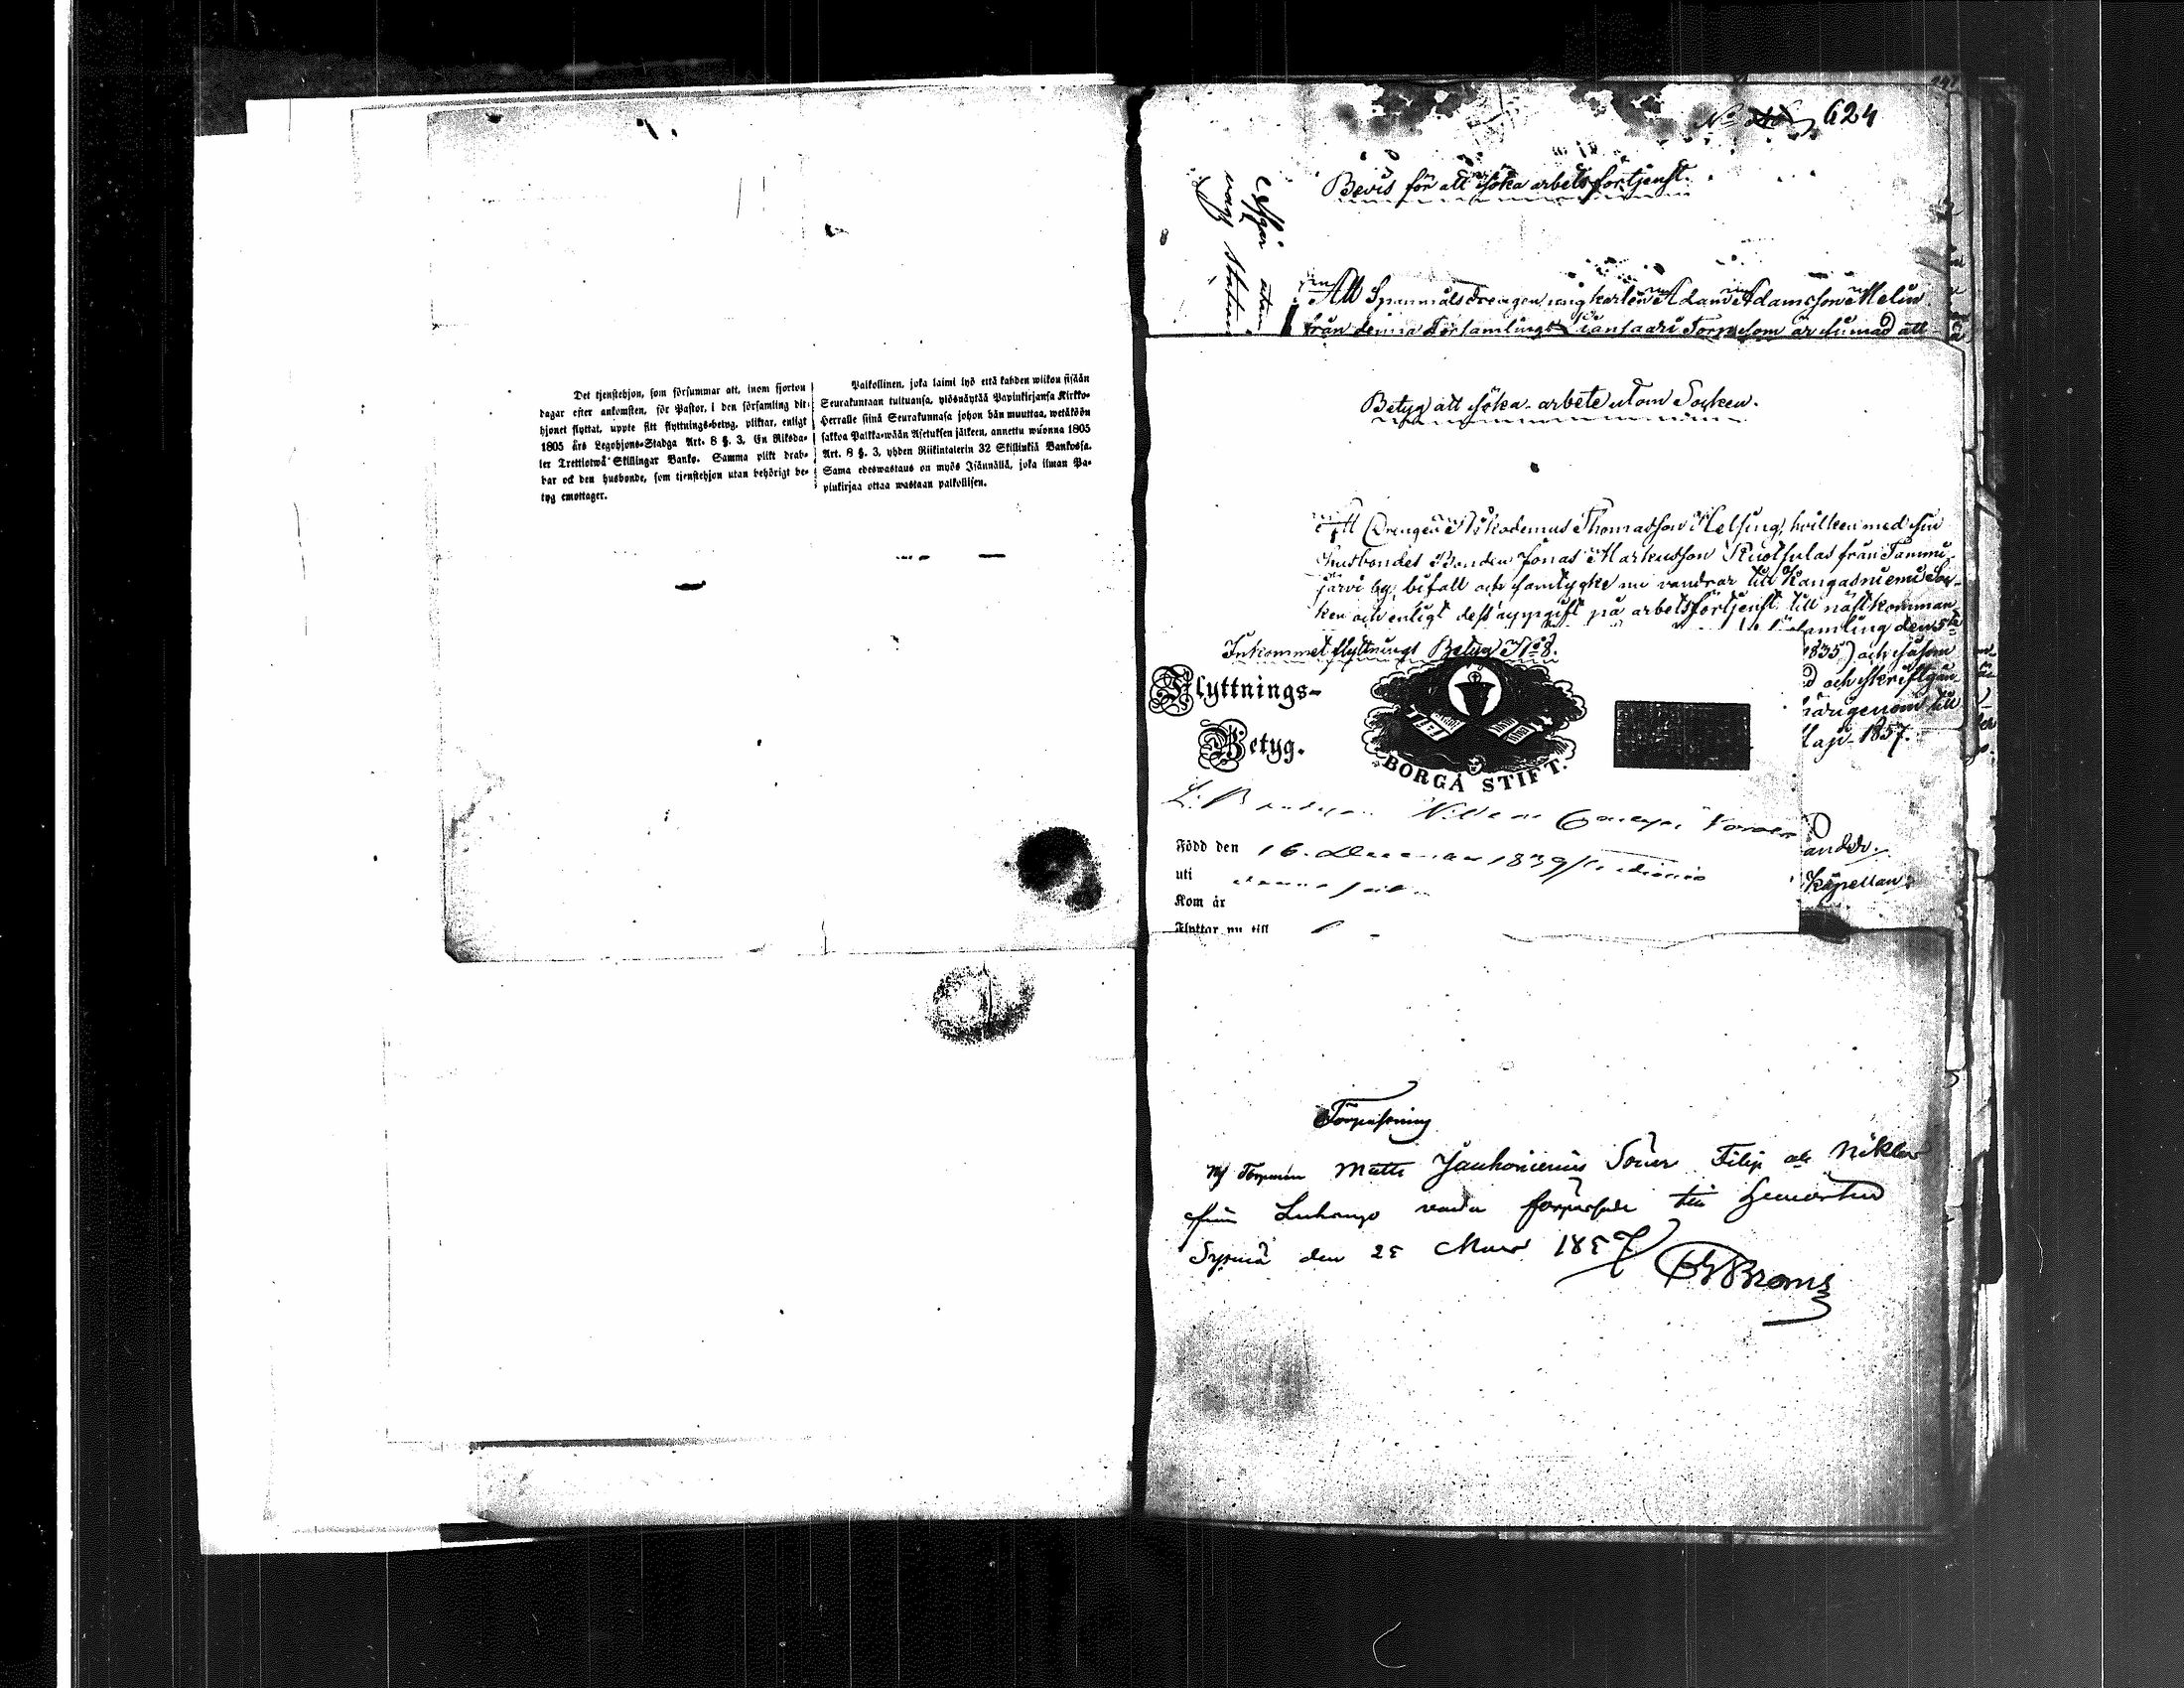 Det tjenstehjon, som försummar att, inom fjorton
dagar efter ankomsten, för Pastor, i den församling dit-
hjonet flyttat, uppte sitt flyttnings-betyg, pliktar, enligt
1805 års Legohjons-Stadga Art. 8 §. 3, En Riksda-
ler Trettiotwå Skillingar Banko. Samma plikt drab-
bar ock den husbonde, som tjenstehjon utan behörigt be-
tyg emottager.
Palkollinen, joka laimi lyö että kahden wiikon sisään
Seurakuntaan tultuansa, ylösnäytää Papinkirjansa Kirkko-
Herralle siinä Seurakunnasa johon hän muuttaa, wetäköön
sakkoa Palkka-wään Asetuksen jälkeen, annettu wuonna 1805
Art. 8 §. 3, yhden Riikintalerin 32 Skillinkiä Bankossa.
Sama edeswastaus on myös Isännällä, joka ilman Pa-
pinkirjaa ottaa wastaan palkollisen.
No 624
Bevis för att söka arbetsförtjenst.
Att Spannmåls drengen ungkarlen Adam Adamsson Melin
från denna Församlings Torp som är sinnad att
Betyg att söka arbete utom Socken.
Att Drengen Nikodemus Thomasson Helsing, hvilken med sin
husbondes Bonden Jonas Markusson Ruotsulas från Tammi-
järvi by, bifall och samtycke nu vandrar till Kangasniemi Soc-
ken och enligt dess uppgift på arbetsförtjenst till nästkomman
samling den 5te
1835) och såsom
d och skriftgån
härigenom till
Maji 1857.
ander.
Kapellan.
Inkommet flyttnings Betyg No 8.
Flyttnings-
Betyg.
BORGÅ STIFT.
Född den 16. December 1839
uti
Kom år
Flyttar nu till
Förpassning
Matts Söner Filip och Niklas
från Luhango varda förpassade till hemorten
Sysmä den 25 Mars 1857
Broms